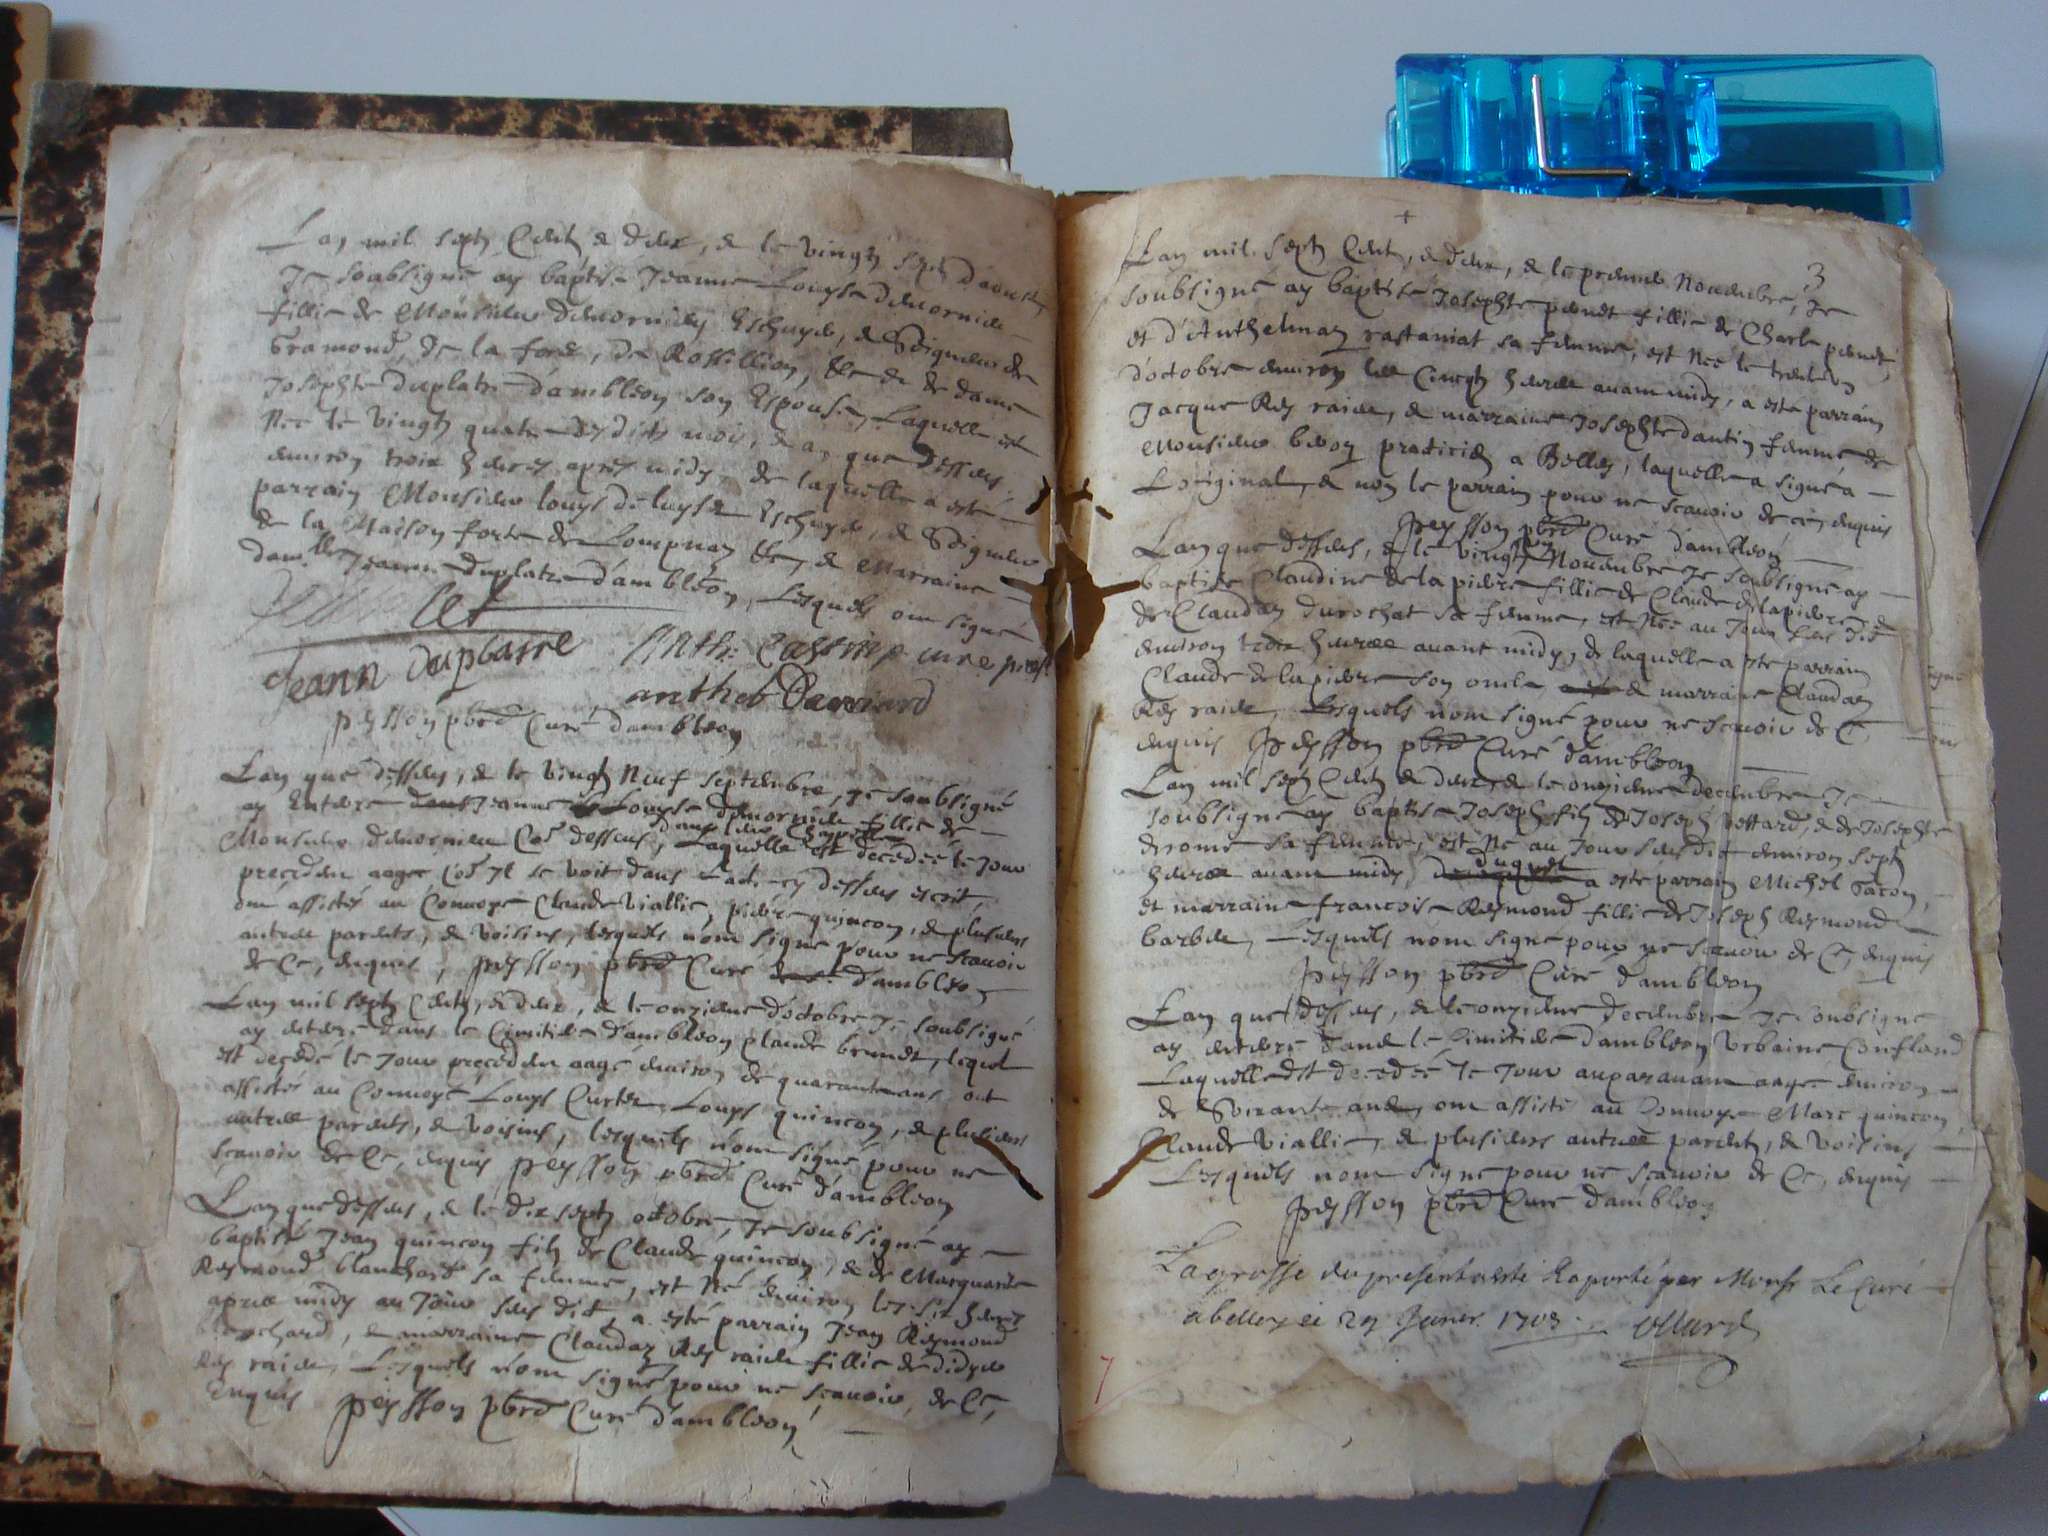 Lan mil sept Cent & deux, & le vingt sept d'aoust,
Je soubsigné ay baptisé Jeanne Louyse
fillie de Monsieur Eschuyer, & Seigneur de
Gramond, de la forest, de Rossillion, &c & de dame
Josephte Duplatre d'ambleon son Espouse, Laquelle est
Née le vingt quatre desdits mois, & an que dessus,
environ troix heures apres midy, de laquelle a esté
parrain Monsieur louys de luyset Eschuyer, & Seigneur
de la Maison forte de Lompnaz &c, & Marraine
dam.lle Jeanne duplatre d'ambleon, Lesquels ont signé
Jeann duplastre Anth: curé
anthel
peysson pbre Curé d'ambleon
Lan que dessus, & le vingt Neuf septembre, je soubsigné
ay Enterre Jeanne Louyse fillie de
dans leur Chappelle
Monsieur Co.e dessus, Laquelle est decedée le jour
precedent aagée Co.e Jl se voit dans l'acte cy dessus escrit,
ont assistés au Convoye Claude Viallie, pierre quincon, & plusieurs
autres parents, & voisins, lesquels n'ont signé pour ne scavoir
de Ce, enquis, peysson pbre Curé d'ambleon
Lan mil sept Cent, & deux, & le onzieme d'octobre je soubsigné
ay enterré dans le Cimitiere d'ambleon Claude brunet, lequel
est decedé le Jour precedent aagé environ de quarante ans, ont
assistés au Convoye Louys Curtet, Louys quincon, & plusieurs
autres parents, & voisins, lesquels n'ont signé pour ne
scavoir de Ce, enquis peysson pbre Curé d'ambleon
Lan que dessus, & le dix sept octobre, Je soubsigné ay
baptisé Jean quincon fils de Claude quincon, & de Marquarite
Reymond blanchard sa femme, est Né environ les six heures
apres midy au Jour sus dit, a esté parrain Jean Reymond
blanchard, & marraine Claudaz Rey raide fillie de didyer
Rey raide, Lesquels n'ont signé pour ne scavoir, de Ce,
Enquis peysson pbre Curé d'ambleon
3
Lan mil sept Cent, & deux, & le premier Novembre, Je
soubsigné ay baptisé Josephte fillie de Charle
et d'Anthelmaz rastaniat sa femme, est Née le trente un
d'octobre environ les Cincq heures avant midy, a esté parrain
Jacque Rey raide, & marraine Josephte dantin femme de
Monsieur praticien a Belley, laquelle a signé a
L'original, & non le parrain pour ne scavoir de ce, enquis
peysson pbre Curé d'ambleon
Lan que dessus, & le vingt Novembre Je soubsigné ay
baptisé Claudine de la pierre fillie de Claude de la pierre, &
de Claudaz durochat sa femme, est Née au Jour sus dit
environ troix heures avant midy, de laquelle a esté parrain
Claude de la pierre son oncle, & marraine Claudaz
Rey raide, Lesquels n'ont signé pour ne scavoir de Ce,
enquis peysson pbre Curé d'ambleon
Lan mil sept Cent & deux & le onzieme decembre Je
soubsigné ay baptisé Joseph fils de Joseph & de Josephte
sa femme, est Né au Jour sus dit environ sept
duquel
heures avant midy, a esté parrain Michel
et marraine francoise Reymond fillie de Joseph Reymond
barbier, lesquels n'ont signé pour ne scavoir de Ce, enquis
peysson pbre Curé d'ambleon
Lan que dessus, & le onzieme decembre Je soubsigné
ay enterré dans le Cimitiere d'ambleon Urbaine
Laquelle est decedée le Jour auparavant aagée environ
de Soixante ans, ont assisté au Convoye Marc quincon,
Claude Viallie, & plusieurs autres parents, & voisins
Lesquels n'ont signé pour ne scavoir de Ce, enquis
peysson pbre Curé d'ambleon
La grosse du present a esté Raporté par Monsr Le Curé
a belley ce 29 Janvier 1703